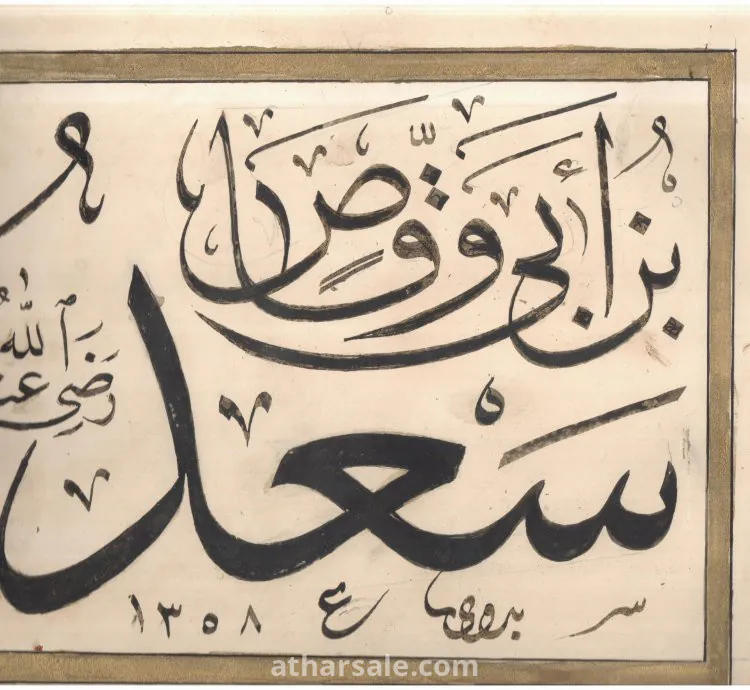 سعد
بن أبي وقاص
رضي الله
بدوي ١٣٥٨
atharsale.com